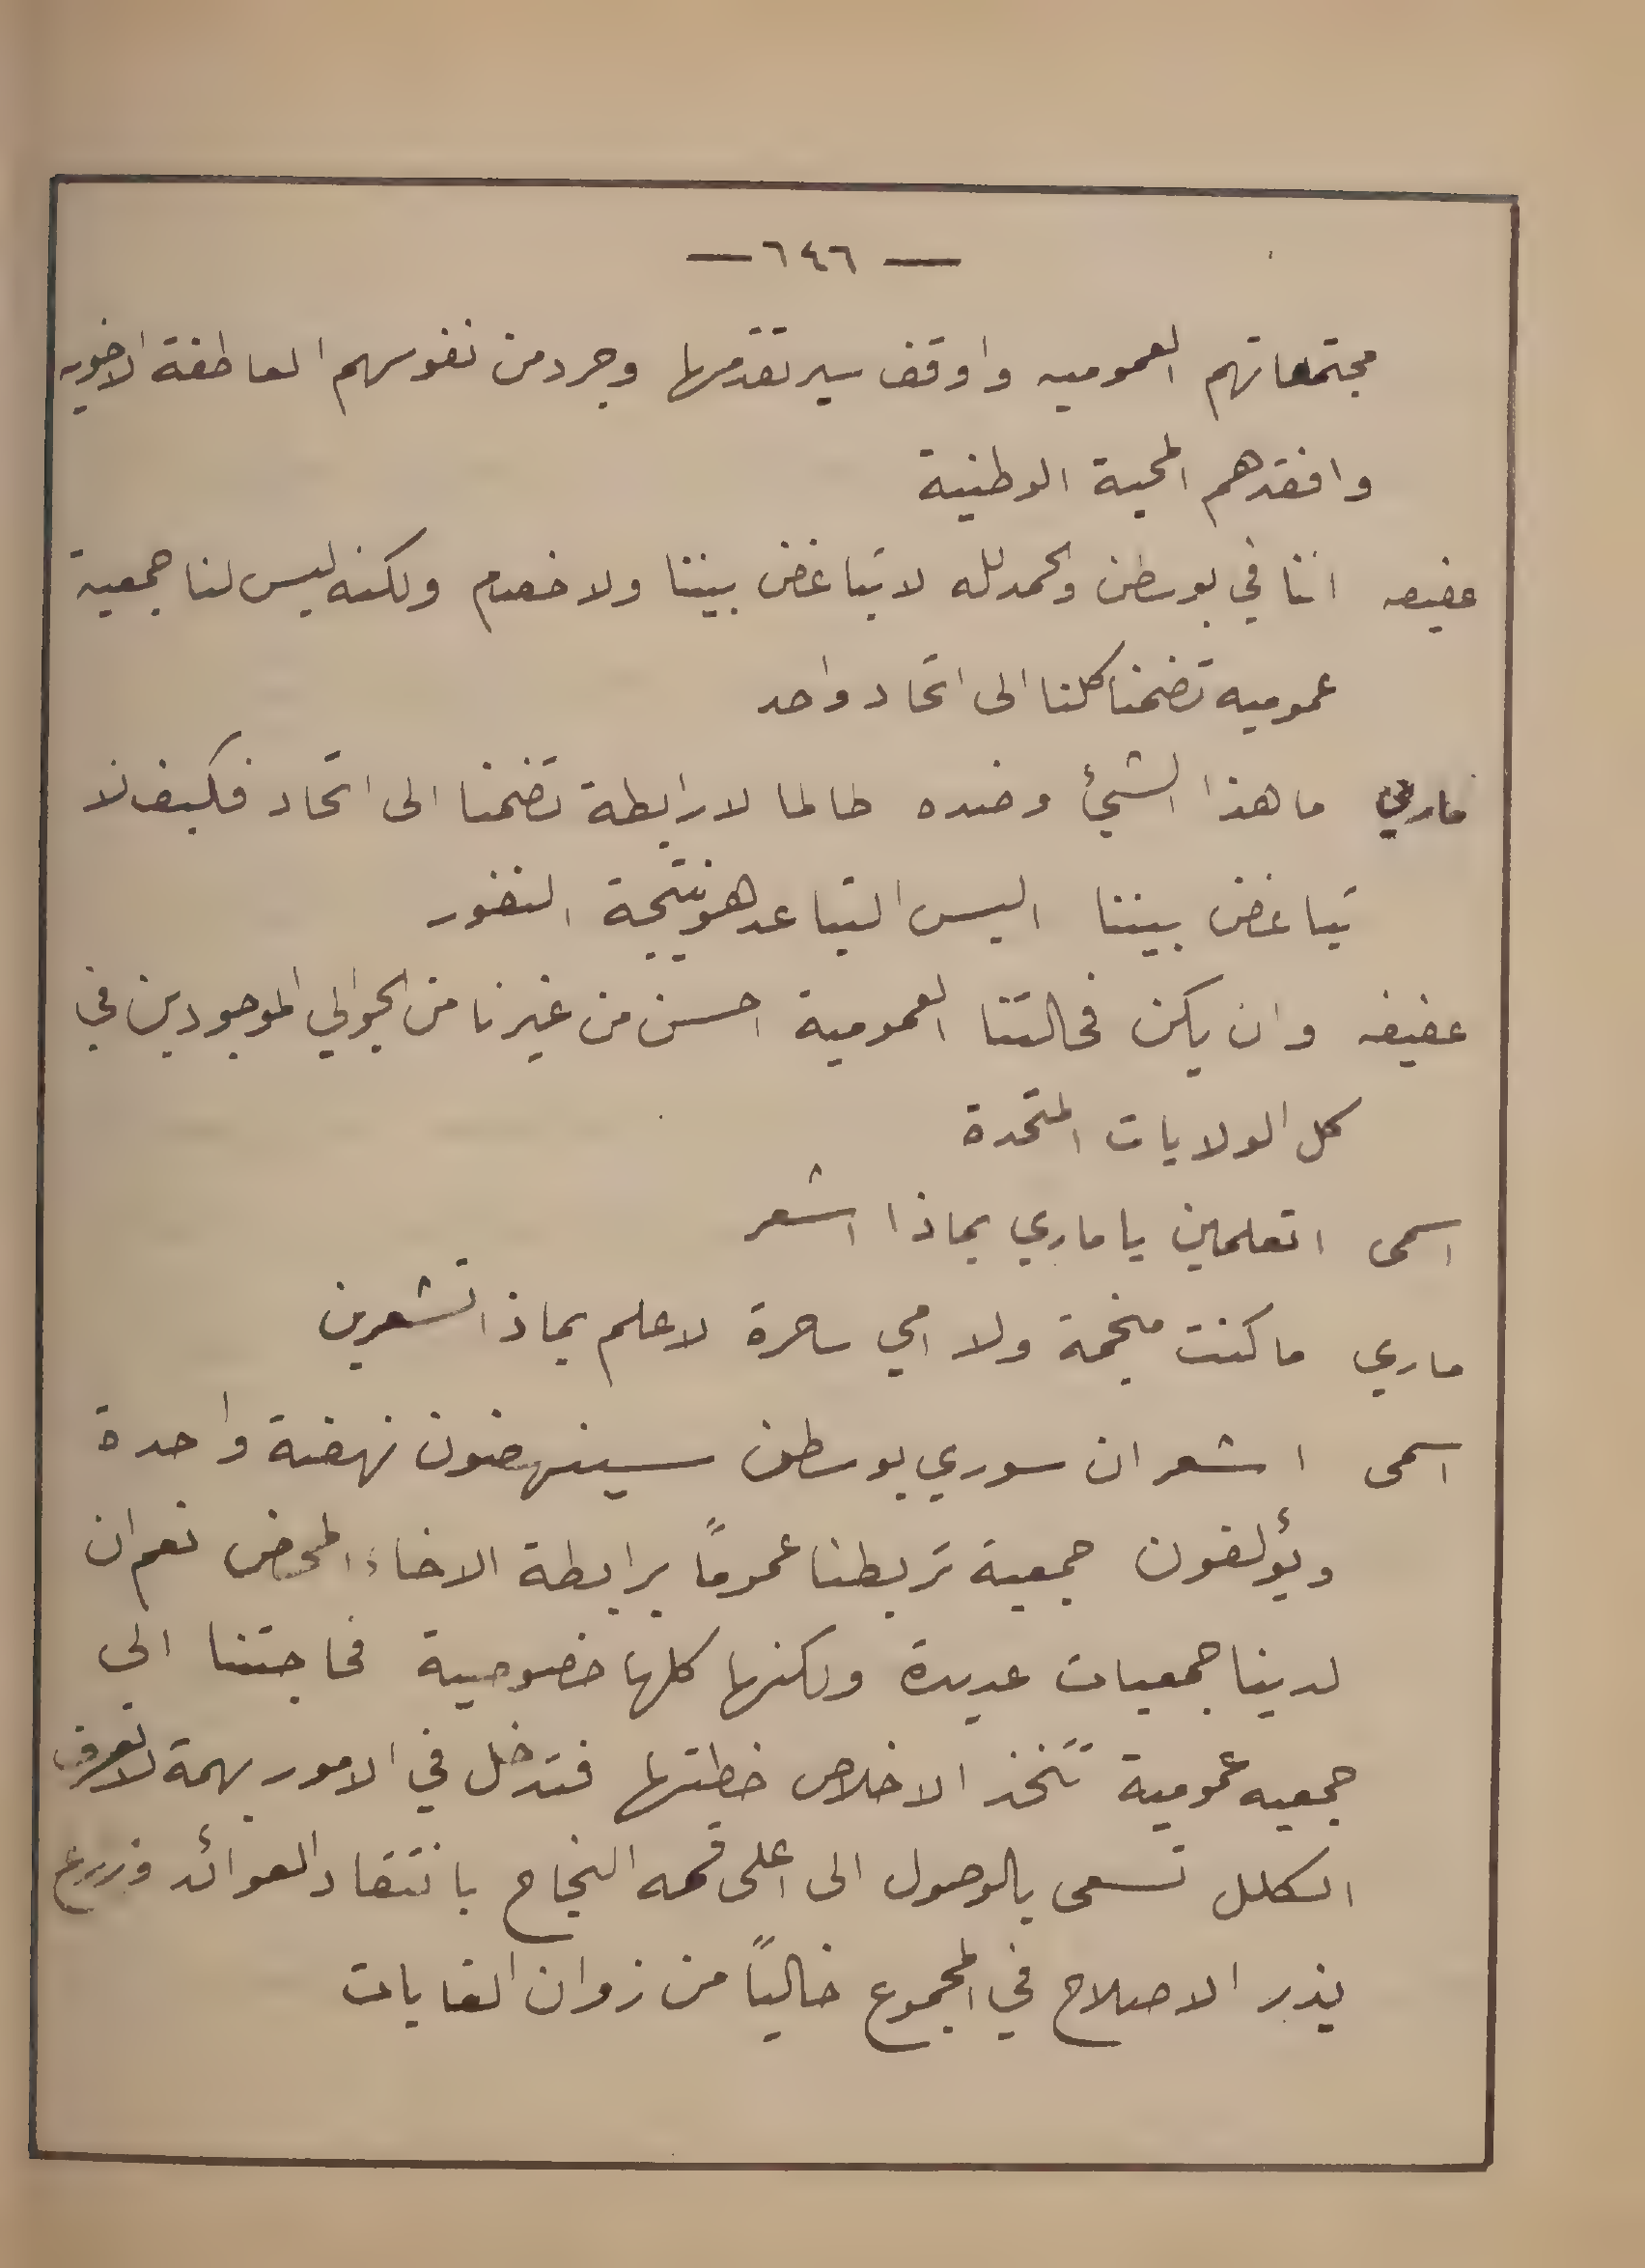 — ٦٤٦ —
مجتمعاتهم العموميه واوقف سير تقدمها وجرد من نفوسهم العاطفة الاخويه
وافقدهم المحبة الوطنية
عفيفه اننا في بوسطن والحمدلله لا تباغض بيننا ولا خصام ولكنه ليس لنا جمعية
عموميه تضمنا كلنا الى اتحاد واحد
ماري ما هذا الشيئ وضده طالما لا رابطة تضمنا الى اتحاد فكيف لا
تباغض بيننا اليس التباعد هو نتيجة النفور
عفيفه وان يكن فحالتنا العمومية احسن من غيرنا من الجوالي الموجودين في
كل الولايات المتحدة
اسمى اتعلمين يا ماري بماذا اشعر
ماري ما كنت منجمة ولا امي ساحرة لاعلم بماذا تشعرين
اسمى اشعر ان سوري بوسطن سينهضون نهضة واحدة
ويؤلفون جمعية تربطنا عموماً برابطة الاخاء المحض نعم ان
لدينا جمعيات عديدة ولكنها كلها خصوصية فحاجتنا الى
جمعيه عمومية تتخذ الاخلاص خطتها فتدخل في الامور بهمة لا تعرف
الكلل تسعى بالوصول الى اعلى قمه النجاح بانتقاد العوائد وزرع
بذر الاصلاح في المجموع خالياً من زوان الغايات